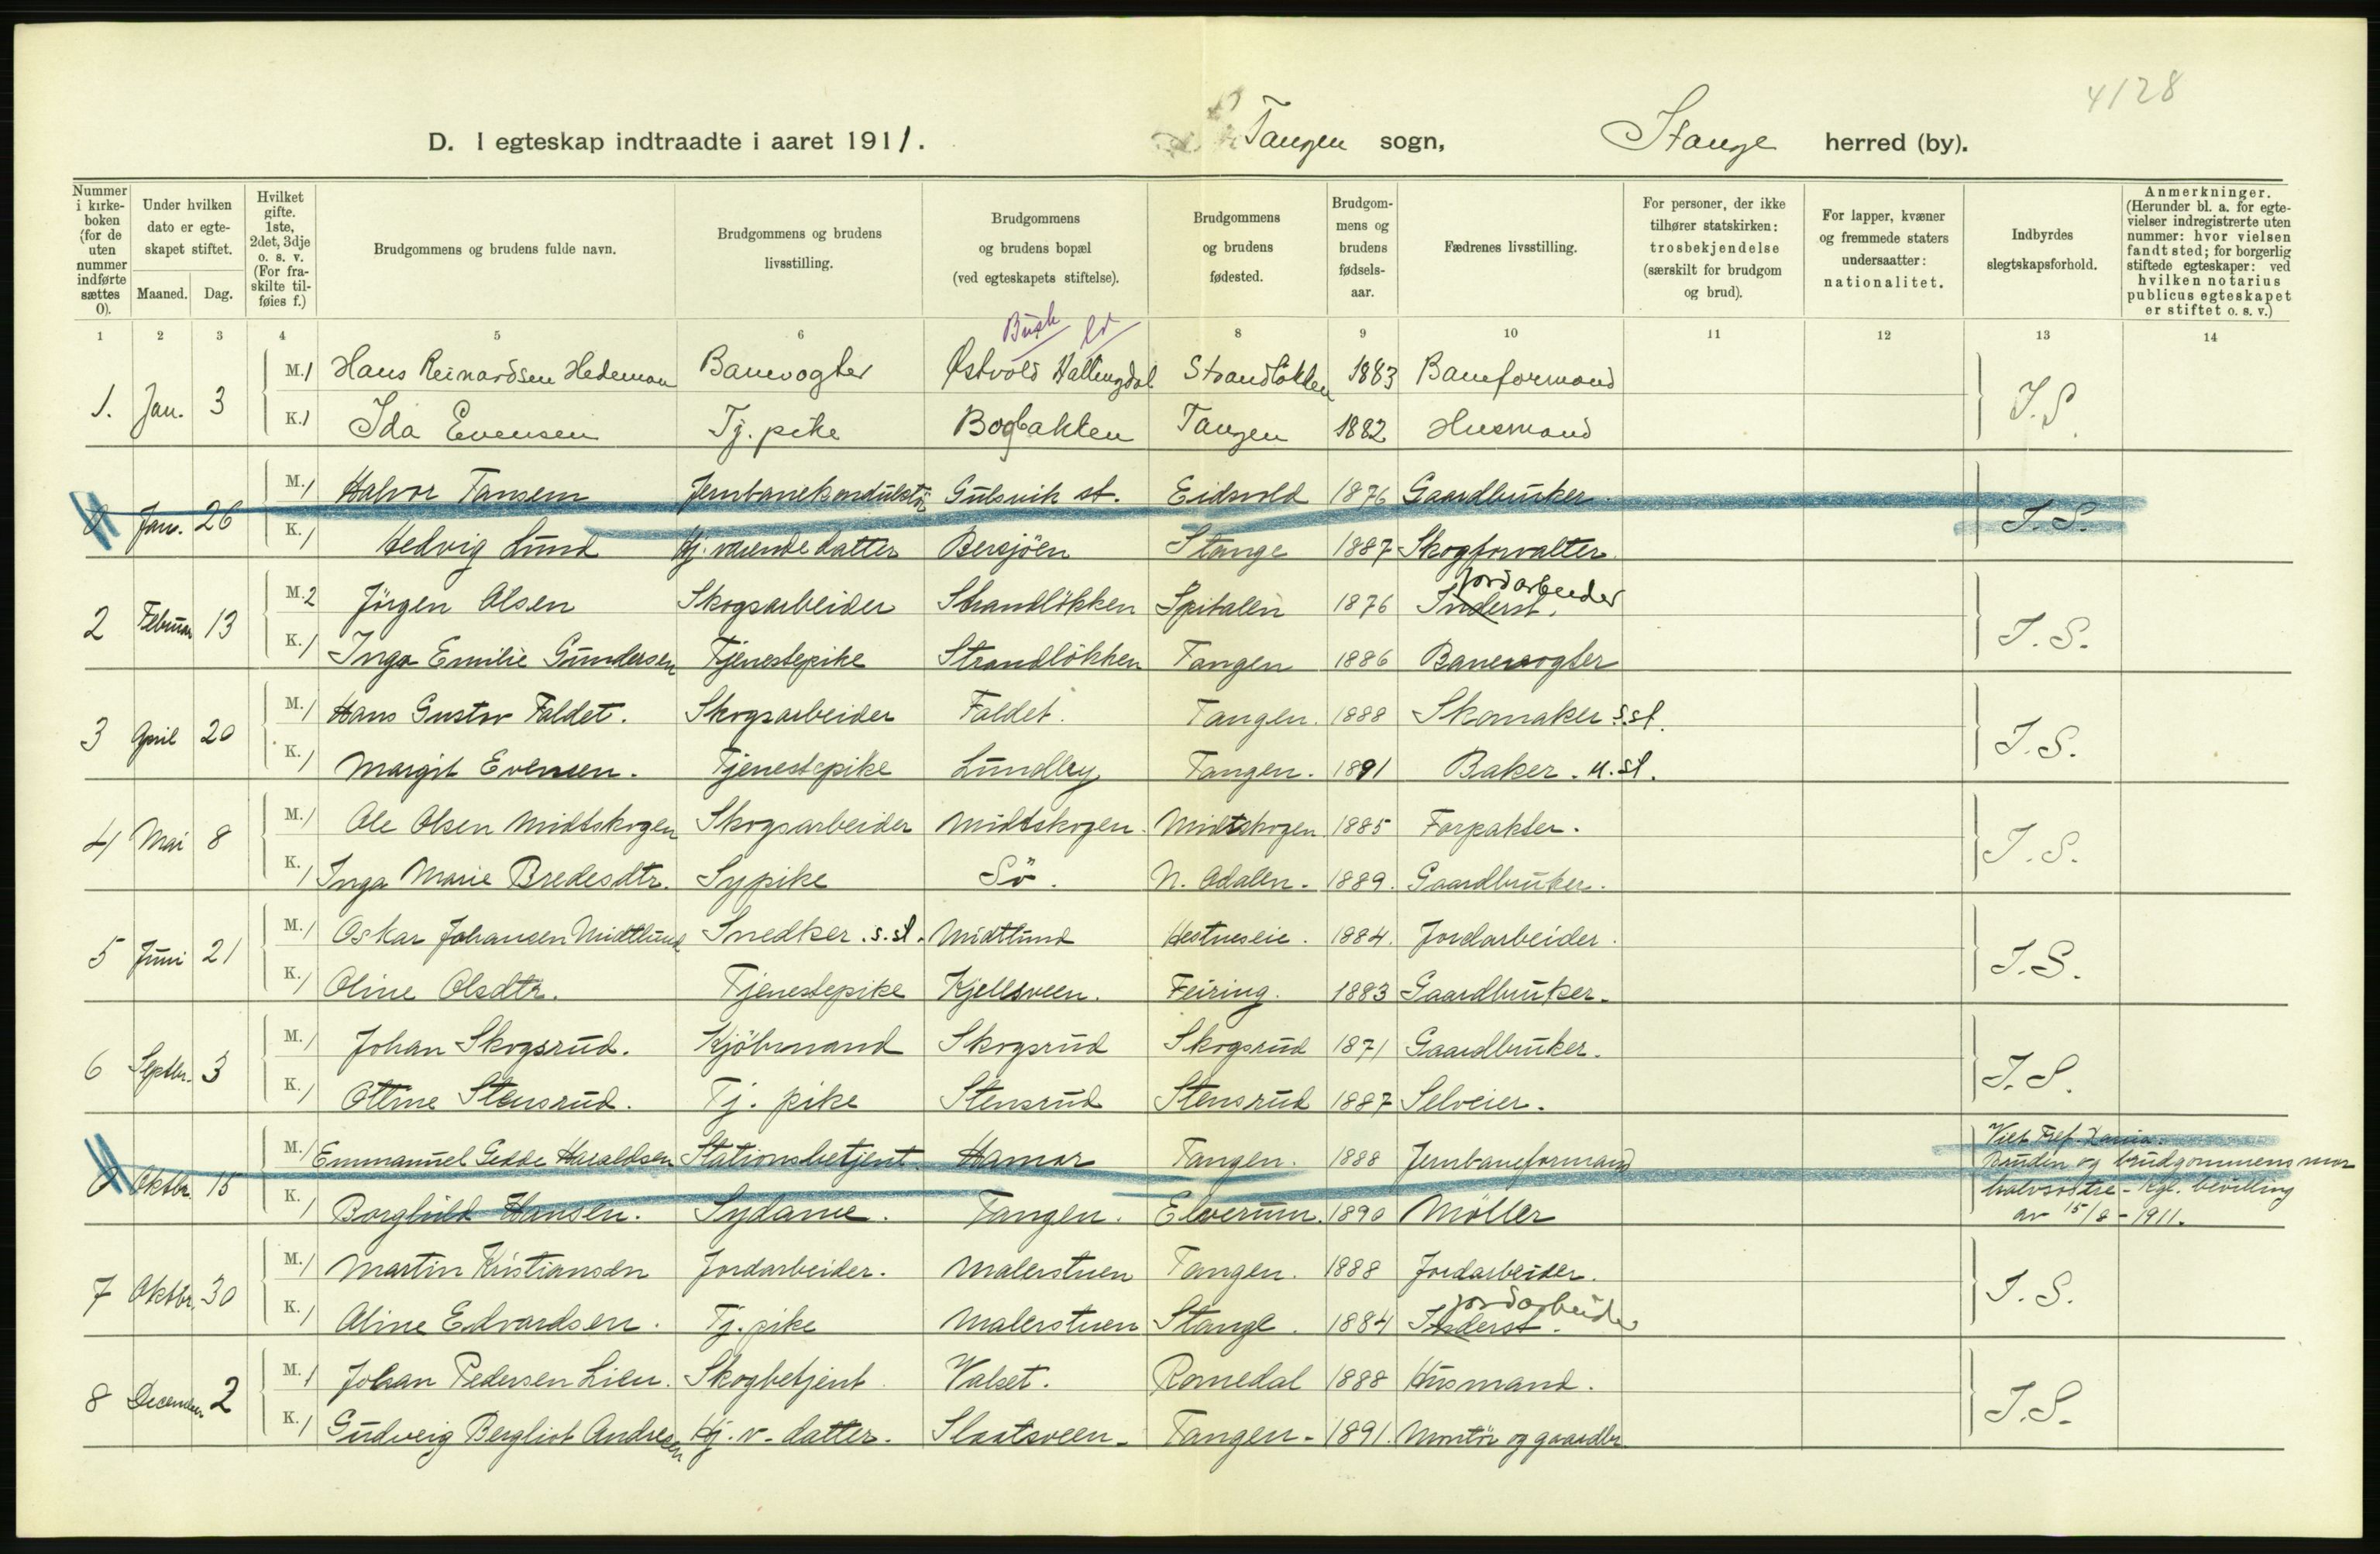 4128
D. I egteskap indtraadte i aaret 1911. Tangen sogn, Stange herred (by).
Nummer i kirke-boken (for de uten nummer indførte sættes 0).
Under hvilken dato er egte-skapet stiftet.
Maaned. Dag.
Hvilket gifte. 1ste, 2det, 3dje o. s. v. (For fra-skilte til-føies f.)
Brudgommens og brudens fulde navn.
Brudgommens og brudens livsstilling.
Brudgommens og brudens bopæl (ved egteskapets stiftelse).
Brudgommens og brudens fødested.
Brudgom-mens og brudens fødsels-aar.
Fædrenes livsstilling.
For personer, der ikke tilhører statskirken: trosbekjendelse (særskilt for brudgom og brud).
For lapper, kvæner og fremmede staters undersaatter: nationalitet.
Indbyrdes slegtskapsforhold.
Anmerkninger. (Herunder bl. a. for egte-vielser indregistrerte uten nummer: hvor vielsen fandt sted; for borgerlig stiftede egteskaper: ved hvilken notarius publicus egteskapet er stiftet o. s. v.)
1 2 3 4 5 6 8 9 10 11 12 13 14
Busk
M. 1 Hans Reinardsen Hedeman Banevogter Østvold Hallingdal Strandløkken 1883 Baneformand
1. Jan. 3 I.S.
K. 1 Ida Evensen Tj. pike Bogbakken Tangen 1882 Husmand
M. 1 Halvor Fansem Jernbanekonduktør Gulsvik st. Eidsvold 1876 Gaardbruker.
0 Jan. 26 I.S.
K. 1 Hedvig Lund Hj. værende datter Bergsjøen Stange 1887 Skogforvalter
M. 2 Jörgen Olsen Skogsarbeider Strandlökken Spitalen 1876 Inderst. Jordarbeider
2 Februar 13 I.S.
K. 1 Inga Emilie Gundersen Tjenestepike Strandlökken Tangen 1886 Banevogter
M. 1 Hans Gustav Faldet. Skogsarbeider Faldet. Tangen. 1888 Skomaker s.st.
3 April 20 I.S.
K. 1 Margit Evensen. Tjenestepike Lundby Tangen. 1891 Baker. u.st.
M. 1 Ole Olsen Midtskogen Skogsarbeider Midtskogen. Midtskogen 1885 Forpakter.
4 Mai 8 I.S.
K. 1 Inga Marie Bredesdtr. Sypike Sö. N. Odalen. 1889. Gaardbruker.
M. 1 Oskar Johansen Midtlund Snedker. s.st. Midtlund Hestneseie. 1884. Jordarbeider.
5 Juni 21 I.S.
K. 1 Oline Olsdtr. Tjenestepike Kjellsveen. Feiring. 1883 Gaardbruker.
M. 1 Johan Skogsrud. Kjöbmand Skogsrud Skogsrud 1871 Gaardbruker.
6 Septbr. 3 I.S.
K. 1 Otline Stensrud. Tj. pike Stensrud Stensrud 1887 Selveier.
M. 1 Emmanuel Gedde Haraldsen Stationsbetjent. Hamar Tangen. 1888 Jernbaneformand
0 Oktbr. 15
K. 1 Borghild Hansen. Sydame. Tangen. Elverum. 1890 Möller
Bruden og brudgommens mor
halvsøstre - Kgl. bevilling
av 15/8 - 1911.
M. 1 Martin Kristiansen Jordarbeider. Malerstuen Tangen. 1888 Jordarbeider.
7 Oktbr. 30 I.S.
K. 1 Aline Edvardsen. Tj. pike Malerstuen Stange. 1884 Inderst. jordarbeider
M. 1 Johan Pedersen Lien. Skogbetjent. Valset. Romedal 1888 Husmand.
8 December 2 I.S.
K. 1 Gudveig Bergliot Andresen Hj. v. datter. Slaatsveen. Tangen. 1891. Montör og gaardbr.